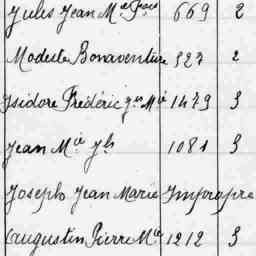 Jules Jean Mie Fois 669 2
Modeste Bonaventure 323 2
Isidore Frédéric Mie 1479 3
Jean Mie 1081 3
Joseph Jean Marie Impropre
Augustin Pierre Mie 1212 3